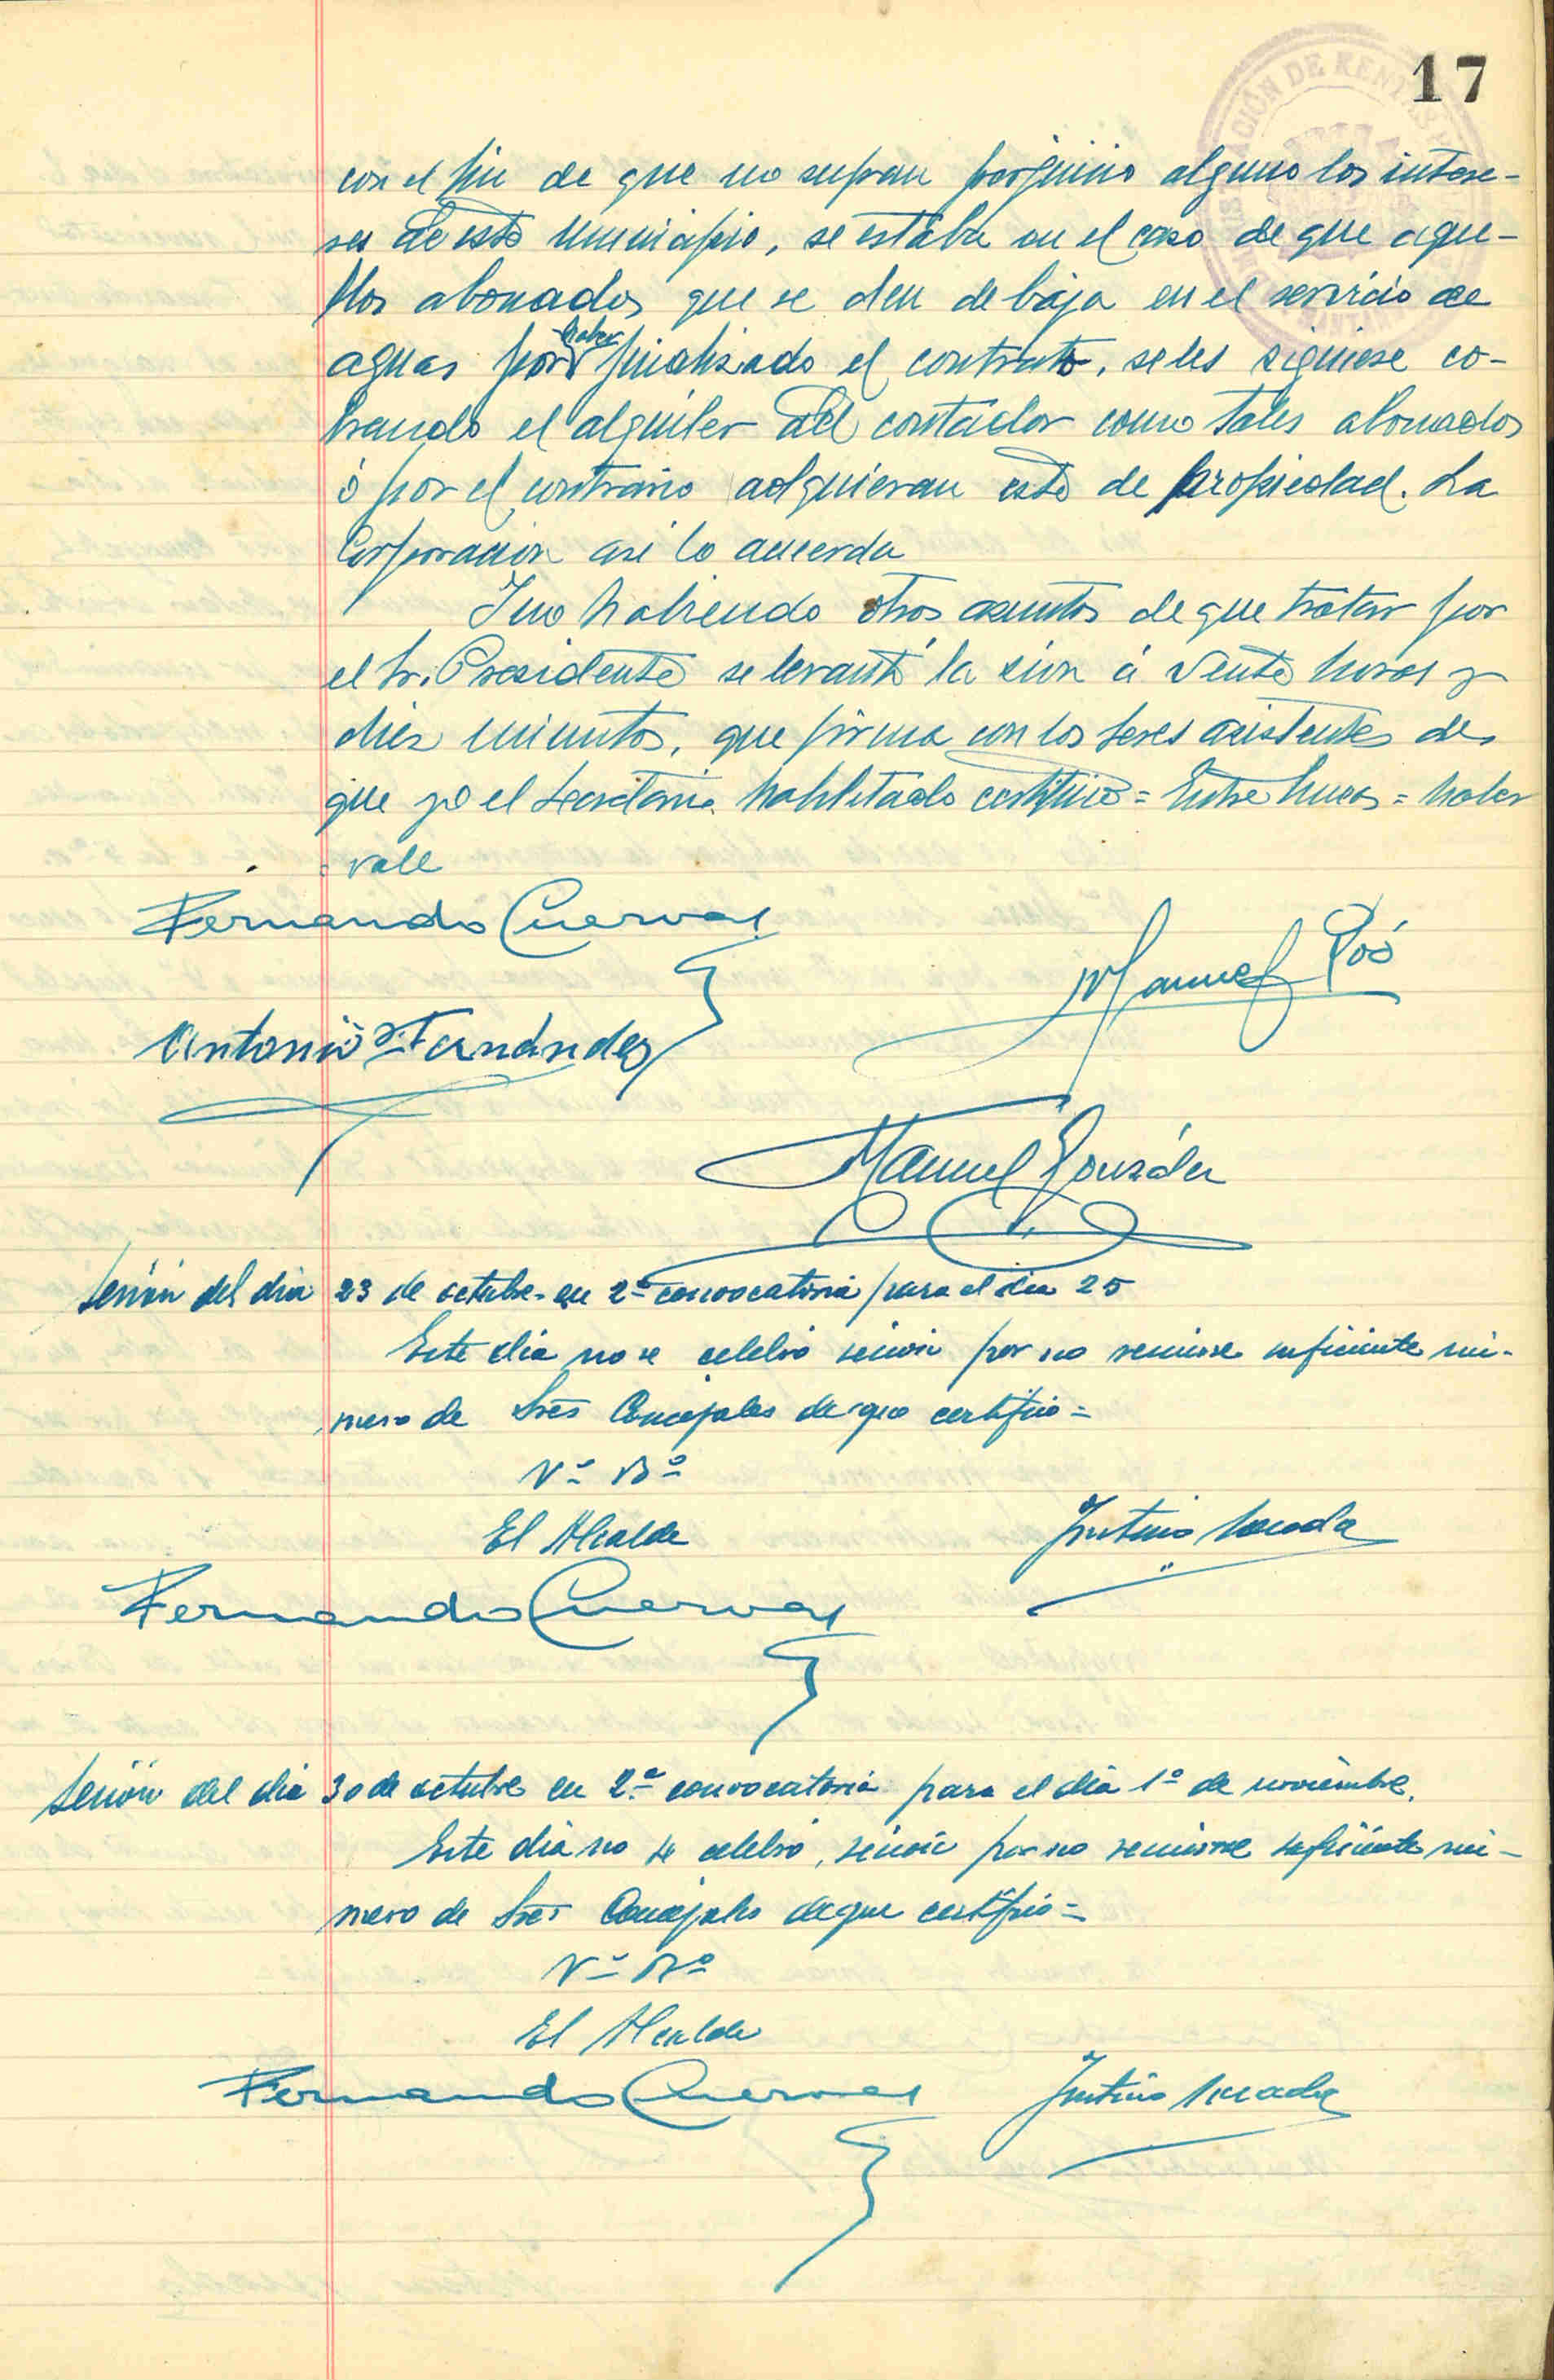 17
con el fin de que no sufran perjuicio alguno los intere-
ses de este municipio, se estaba en el caso de que aque-
llos abonados que se den de baja en el servicio de
aguas por haber finalizado el contrato, se les siguiese co-
brando el alquiler del contador como tales abonados
ó por el contrario adquieran este de propiedad. La
Corporacion asi lo acuerda
Y no habiendo otros asuntos de que tratar por
el Sr. Presidente se levantó la sion á veinte horas y
diez minutos, que firma con los Sres asistentes de
que yo el Secretario habilitado certifico = Entre lineas = haber
vale
Fernando Cuevas
Manuel Poó
Antonio Fernández
Manuel González
Sesión del dia 23 de octubre en 2ª convocatoria para el dia 25
Este dia no se celebró sesion por no reunirse suficiente nú-
mero de Sres Concejales de que certifico =
Vº Bº
El Alcalde
Fernando Cuevas
Sesión del dia 30 de octubre en 2ª convocatoria para el dia 1º de noviembre.
Este dia no se celebró sesion por no reunirse suficiente nú-
mero de Sres Concejales de que certifico =
Vº Bº
El Alcalde
Fernando Cuevas